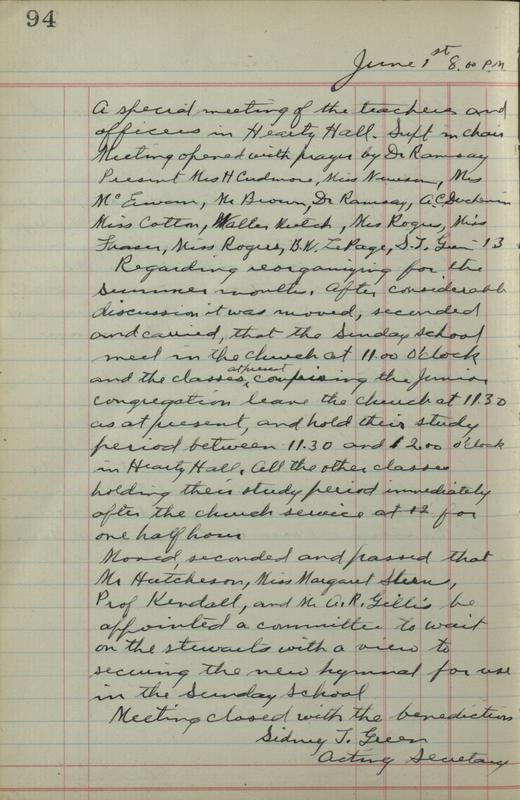 94
June 1st 8.00 P.M
A special meeting of the teachers and
officers in Hearty Hall. Supt in chair
Meeting opened with prayer by Dr Ramsay
Present Mrs H Cudmore, Miss Newson, Mrs
McEwan, Mr Brown, Dr Ramsay, A.C.
Miss Cotton, Walter, Mrs Rogers, Miss
Fraser, Miss Rogers, B.W. LePage, S.T. Green 13
Regarding reorganizing for the
summer months. After considerable
discussion it was moved, seconded
and carried, that the Sunday school
meet in the church at 11.00 O'clock
and the classes, at present comprising the Junior
congregation leave the church at 11.30
as at present, and hold their study
period between 11.30 and 12.00 o'clock
in Hearty Hall. All the other classes
holding their study period immediately
after the church service at 12 for
one half hour
Moved, seconded and passed that
Mr Hutcheson, Miss Margaret Stern,
Prof Kendall, and Mr A.R. Gillis be
appointed a committee to wait
on the stewarts with a view to
securing the new hymnal for use
in the Sunday School
Meeting closed with the benediction
Sidney T. Green
Acting Secretary